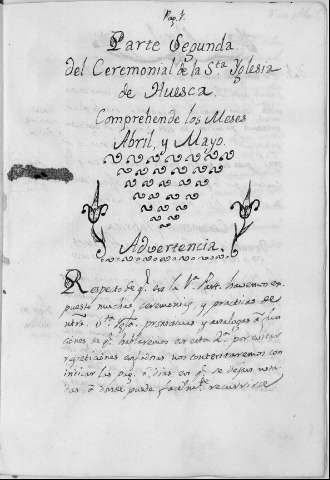 Pag. 1.
Parte Segunda
del Ceremonial de la S.ta Yglesia
de Huesca.
Comprehende los Meses
Abril, y Mayo.
Advertencia.
Respeto de q.e en la 1.a Part. hacemos ex
puesto muchas ceremonias, y practicas de
ntra. S.ta Ygla. proprias y analogas a
ciones de q.e hablaremos en esta 2.a por evitar
repeticiones nos contentaremos con
las pag. o dias en q.e se dejan nota
das, a donde puede facilm.te recurrirse